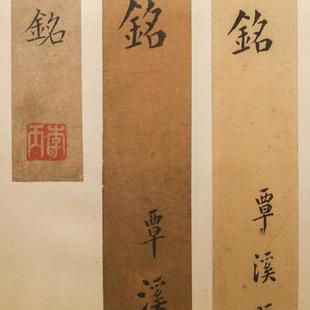 銘
覃溪
銘
覃溪
銘